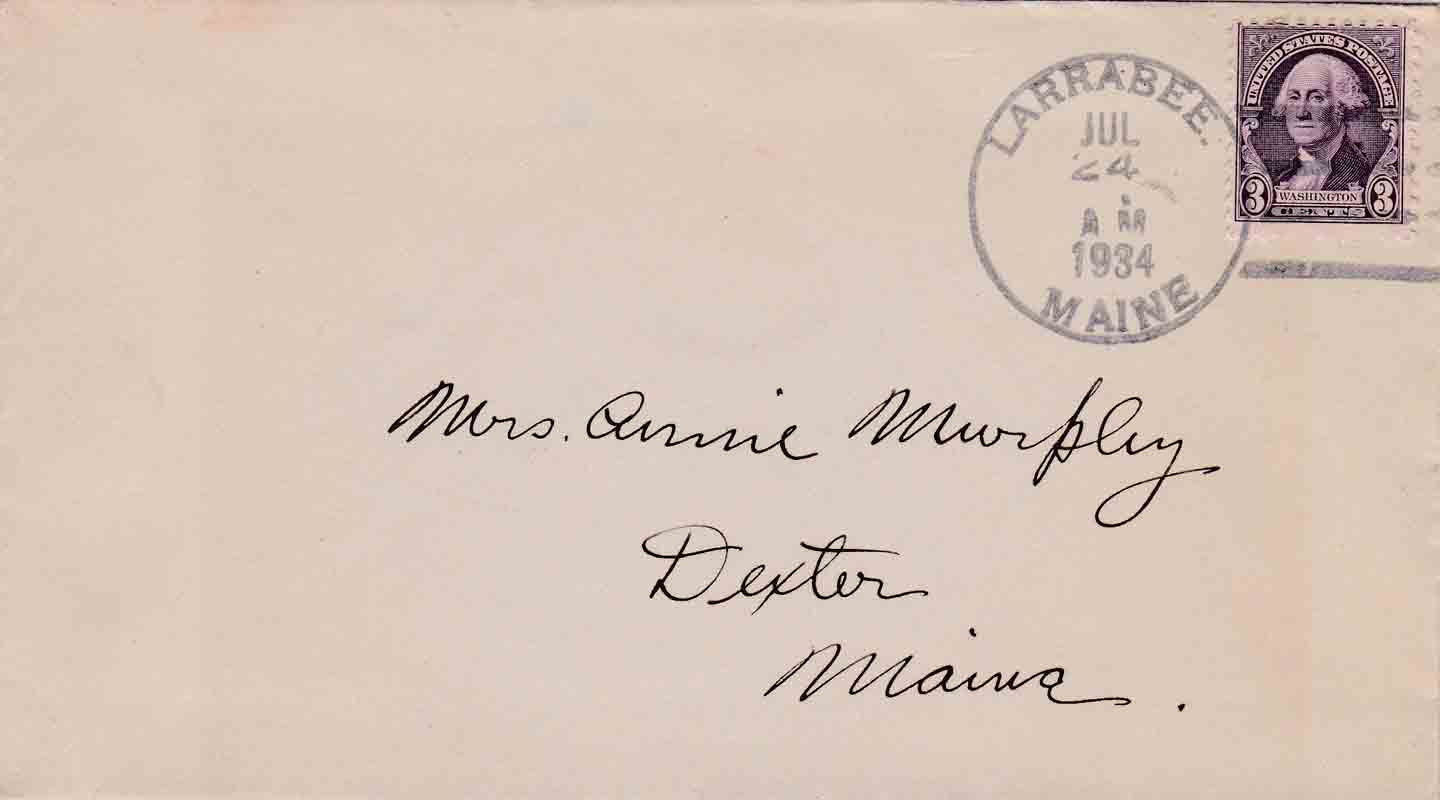 UNITED STATES POSTAGE
3 WASHINGTON 3
CENTS
LARRABEE.
JUL
24
AM
1934
MAINE
Mrs. Annie Murphy
Dexter
Maine.